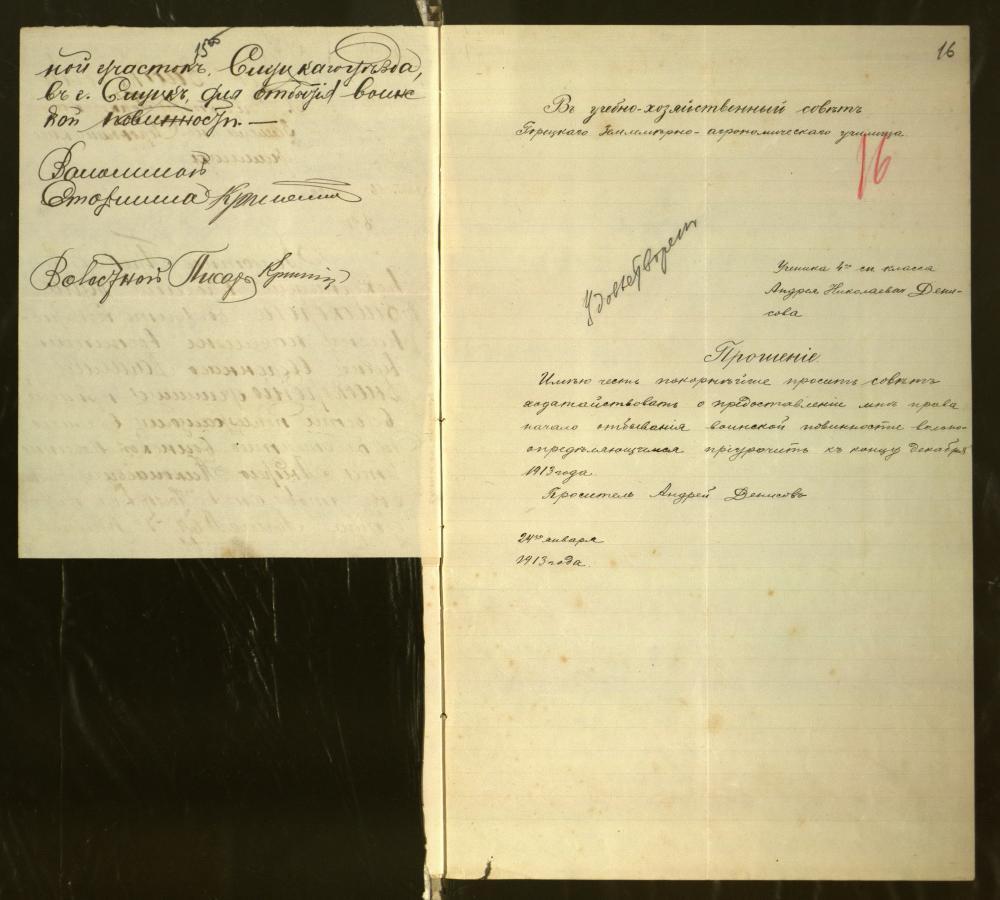 15об
ной участокъ, Слуцкаго уѣзда,
въ г. Слуцкъ, для отбытія воинс
кой повинности. —
Волостной
Старшина
Волостной Писарь
16
Въ учебно-хозяйственный совѣтъ
Горецкаго Землемѣрно-агрономическаго училища
16
Удовлетворен
Ученика 4го сп класса
Андрея Николаевича Дени-
сова
Прошеніе
Имѣю честь покорнѣйше просить совѣтъ
ходатайствовать о предоставленіи мнѣ права
начало отбыванія воинской повинности вольно-
опредѣляющимся пріурочить къ концу декабря
1913 года.
Проситель Андрей Денисовъ
24го января
1913 года.